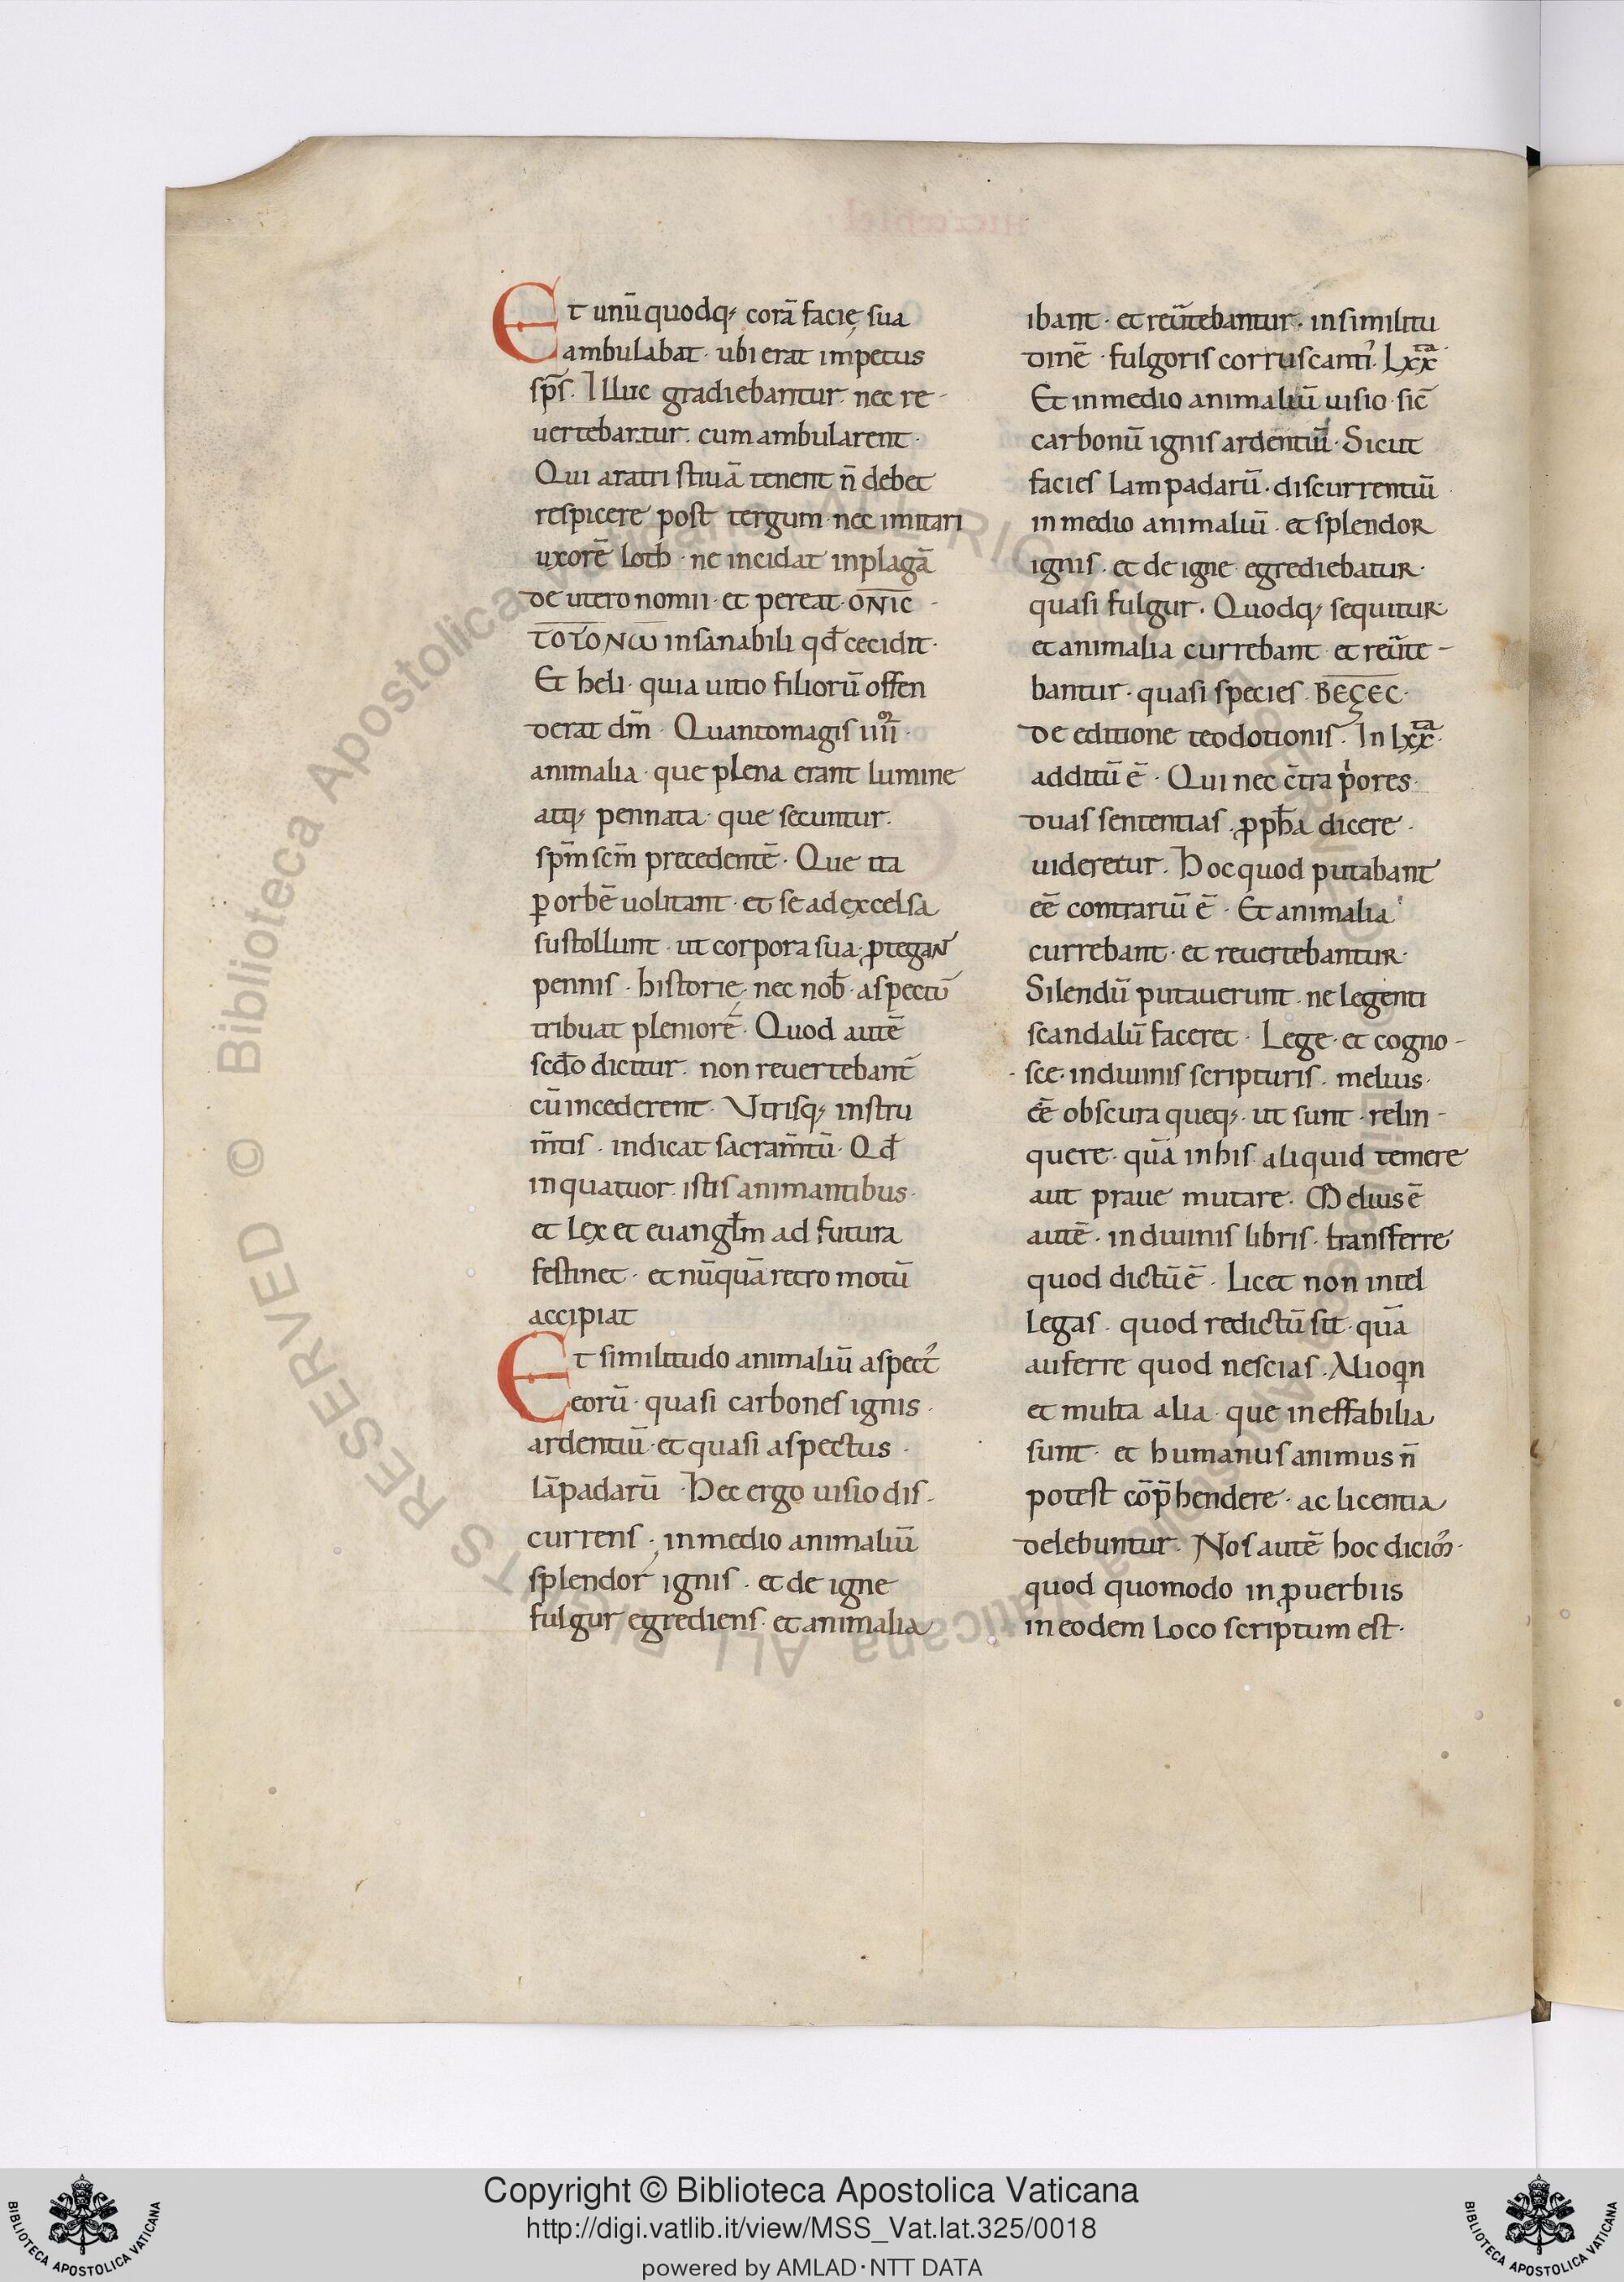 Et unū quodq; corā facię sua
ambulabat · ubi erat impetus
sp̄s. Illuc gradiebantur. nec re-
uertebantur. cum ambularent.
Qui aratri stiuā tenent n̄ debet
respicere post tergum nec imitari
uxorē loth · ne incidat in plagā
de utero nomii · et pereat · ONIC -
TOYONω insanabili qđ cecidit ·
Et heli · quia uitio filiorū offen
derat dm̄ · Quantomagis iiiior ·
animalia · que plena erant lumine
atq; pennata · que secuntur.
sp̄m sc̄m precedentē · Que ita
ꝑ orbē uolitant · et se ad excelsa
sustollunt · ut corpora sua ꝓtegan̄
pennis · historię nec nob̄ · aspectū
tribuat pleniorē · Quod autē
scđo dicitur · non reuertebant̄
cū incederent · Utrisq; instru
m̄tis · indicat sacram̄tū · Qđ
in quatuor istis animantibus ·
et lex et euangłm ad futura
festinet · et nūquā retro motū
accipiat
Et similitudo animaliū aspect᾿
eorū · quasi carbones ignis ·
ardentiū · et quasi aspectus ·
lāpadarū · Hec ergo uisio dis-
currens · in medio animaliū
splendor ignis · et de igne
fulgur egrediens · et animalia
ibant · et reūtebantur · in similitu
dinē · fulgoris corruscanti᾿ · Lxxta ·
Et in medio animaliū uisio sic̄
carbonū ignis ardentiū · Sicut
facies lampadarū · discurrentiū
in medio animaliū · et splendor
ignis · et de igne egrediebatur ·
quasi fulgur · Quodq; sequitur
et animalia currebant et reūte-
bantur · quasi species · BEÇEC ·
de editione teodotionis · In Lxxta ·
additū ē · Qui nec c̄tra p̓ores ·
duas sententias · ꝓph̄a dicere ·
uideretur · Hoc quod putabant
eē contrariū ē · Et animalia
currebant · et reuertebantur ·
Silendū putauerunt · ne legenti
scandalū faceret · Lege · et cogno-
sce · in diuinis scripturis · melius ·
eē obscura queq; · ut sunt · relin-
quere · quā in his aliquid temere
aut praue mutare · Melius ē
autē · in diuinis libris · transferre
quod dictū ē · Licet non intel
legas · quod redictū sit · quā
auferre quod nescias · Alioqn
et multa alia · que in effabilia
sunt · et humanus animus n̄
potest cōp̄hendere · ac licentia
delebuntur · Nos autē hoc dicim᾿ ·
quod quomodo in ꝓuerbiis
in eodem loco scriptum est ·
Copyright © Biblioteca Apostolica Vaticana
http://digi.vatlib.it/view/MSS_Vat.lat.325/0018
powered by AMLAD·NTT DATA
BIBLIOTECA APOSTOLICA VATICANA
BIBLIOTECA APOSTOLICA VATICANA
© Biblioteca Apostolica Vaticana ALL RIGHTS RESERVED